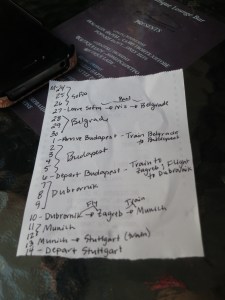 24
25 } Sofia
26
27 - Leave Sofia → Nis → Belgrade
28
29 } Belgrade
30
1 - Arrive Budapest - Train Belgrade → Budapest
2
3
4 } Budapest
5
6 - Depart Budapest - Train to Zagreb, Flight to Dubrovnik
7
8 } Dubrovnik
9
Fly Train
10 - Dubrovnik → Zagreb → Munich
11 } Munich
12
13 Munich → Stuttgart (train)
14 - Depart Stuttgart
Lounge Bar